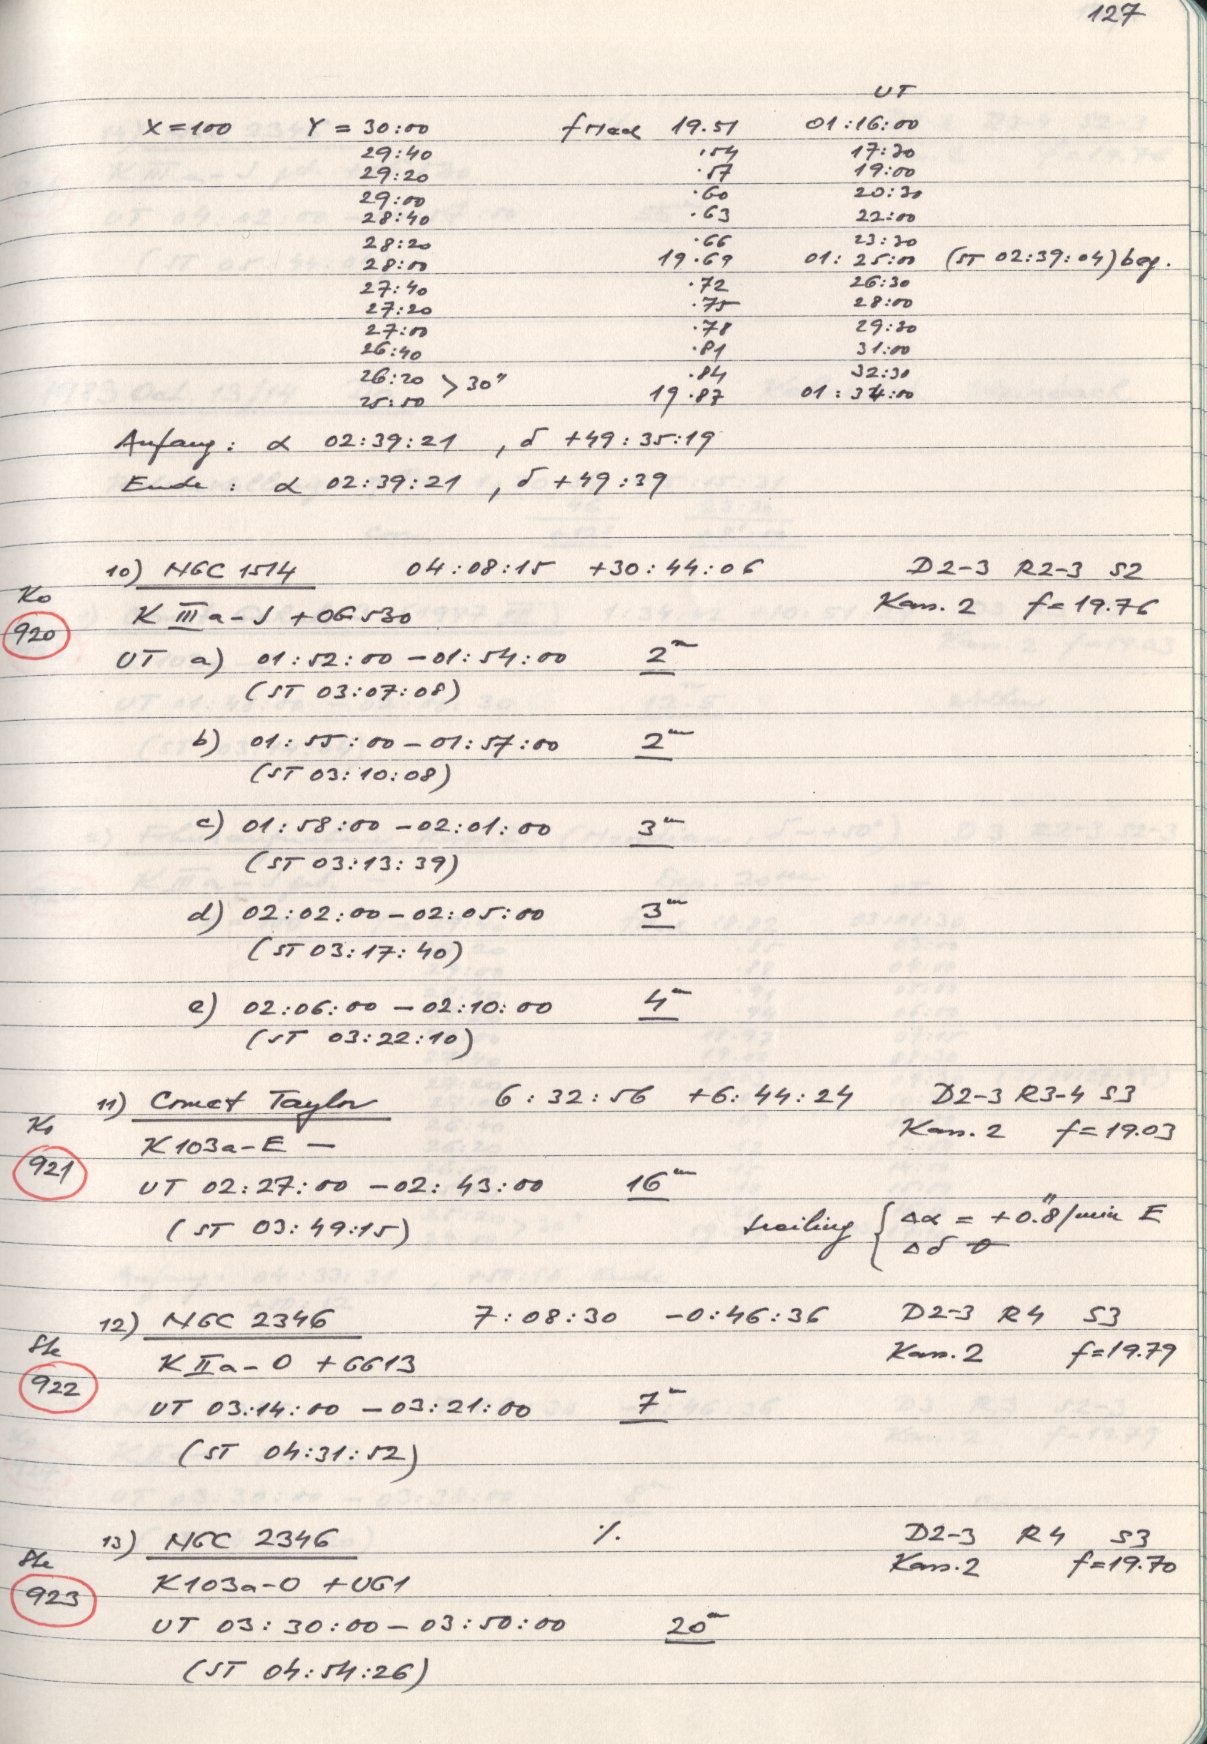 127
UT
X=100 Y = 30:00 19.51 01:16:00
29:40 .54 17:30
29:20 .57 19:00
29:00 .60 20:30
28:40 .63 22:00
28:20 .66 23:30
28:00 19.69 01:25:00 (ST 02:39:04) beg.
27:40 .72 26:30
27:20 .75 28:00
27:00 .78 29:30
26:40 .81 31:00
26:20 .84 32:30
> 30"
25:50 19.87 01:34:00
Anfang: α 02:39:21 , δ +49:35:19
Ende : α 02:39:21 , δ +49:39
10) NGC 1514 04:08:15 +30:44:06 D2-3 R2-3 S2
Ko
920
K IIIa-J + OG530 Kass. 2 f=19.76
UT a) 01:52:00 - 01:54:00 2m
(ST 03:07:08)
b) 01:55:00 - 01:57:00 2m
(ST 03:10:08)
c) 01:58:00 - 02:01:00 3m
(ST 03:13:39)
d) 02:02:00 - 02:05:00 3m
(ST 03:17:40)
e) 02:06:00 - 02:10:00 4m
(ST 03:22:10)
11) Comet Taylor 6:32:56 +6:44:24 D2-3 R3-4 S3
Ko
921
K103a-E — Kass. 2 f=19.03
UT 02:27:00 - 02:43:00 16m
(ST 03:49:15) trailing { Δα = +0."8/min E
Δδ 0
12) NGC 2346 7:08:30 -0:46:36 D2-3 R4 S3
Ste
922
K IIa-O + GG13 Kass. 2 f=19.79
UT 03:14:00 - 03:21:00 7m
(ST 04:31:52)
13) NGC 2346 ·/. D2-3 R4 S3
Ste
923
K103a-O + UG1 Kass. 2 f=19.70
UT 03:30:00 - 03:50:00 20m
(ST 04:54:26)